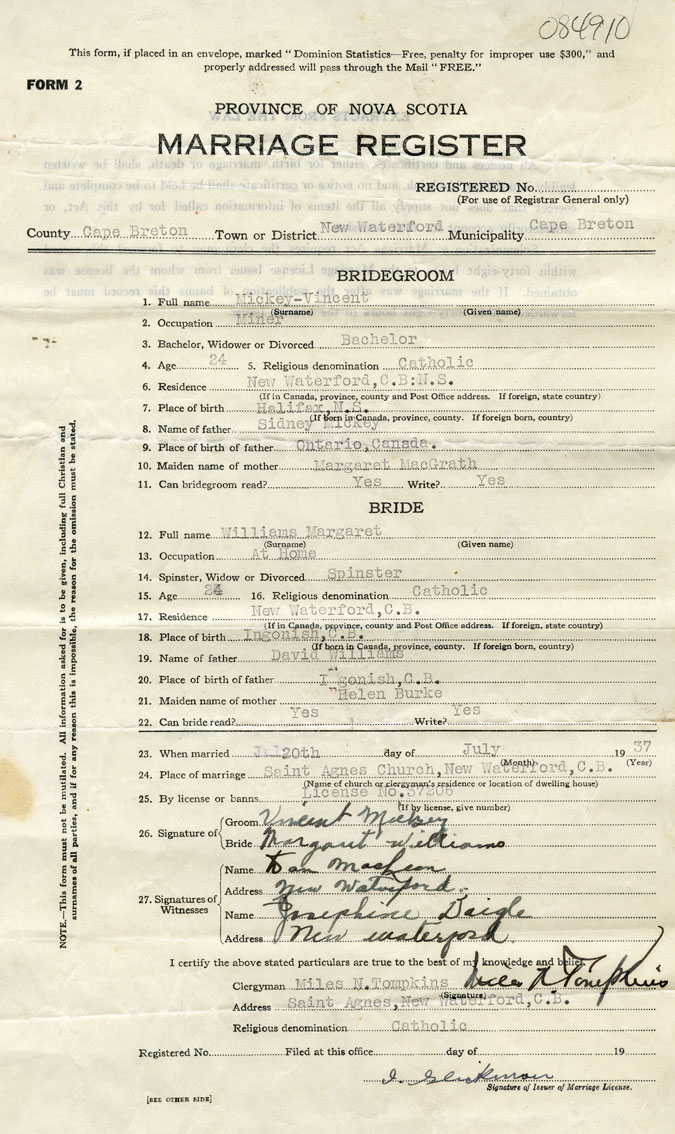 084910
This form, if placed in an envelope, marked "Dominion Statistics—Free, penalty for improper use $300," and
properly addressed will pass through the Mail "FREE."
FORM 2
PROVINCE OF NOVA SCOTIA
MARRIAGE REGISTER
REGISTERED No.
(For use of Registrar General only)
County Cape Breton Town or District New Waterford Municipality Cape Breton
BRIDEGROOM
1. Full name Mickey-Vincent
(Surname) (Given name)
2. Occupation Miner
3. Bachelor, Widower or Divorced Bachelor
4. Age 24 5. Religious denomination Catholic
6. Residence New Waterford,C.B:N.S.
(If in Canada, province, county and Post Office address. If foreign, state country)
7. Place of birth Halifax,N.S.
(If born in Canada, province, county. If foreign born, country)
8. Name of father Sidney Mickey
9. Place of birth of father Ontario,Canada.
10. Maiden name of mother Margaret MacGrath
11. Can bridegroom read? Yes Write? Yes
BRIDE
12. Full name Williams Margaret
(Surname) (Given name)
13. Occupation At Home
14. Spinster, Widow or Divorced Spinster
15. Age 24 16. Religious denomination Catholic
17. Residence New Waterford,C.B.
(If in Canada, province, county and Post Office address. If foreign, state country)
18. Place of birth Ingonish,C.B.
(If born in Canada, province, county. If foreign born, country)
19. Name of father David Williams
20. Place of birth of father I gonish,C.B.
21. Maiden name of mother Helen Burke
22. Can bride read? Yes Write? Yes
23. When married 20th day of July 19 37
(Month) (Year)
24. Place of marriage Saint Agnes Church,New Waterford,C.B.
(Name of church or clergyman's residence or location of dwelling house)
25. By license or banns License No.37206
(If by license, give number)
26. Signature of
Groom Vincent Mickey
Bride Margaret Williams
27. Signatures of Witnesses
Name Dan MacLean
Address New Waterford.
Name Josephine Daigle
Address New Waterford.
I certify the above stated particulars are true to the best of my knowledge and belief.
Clergyman Miles N.Tompkins Miles N. Tompkins
(Signature)
Address Saint Agnes,New Waterford,C.B.
Religious denomination Catholic
Registered No. Filed at this office day of 19
Signature of Issuer of Marriage License.
[SEE OTHER SIDE]
NOTE.—This form must not be mutilated. All information asked for is to be given, including full Christian and
surnames of all parties, and if for any reason this is impossible, the reason for the omission must be stated.